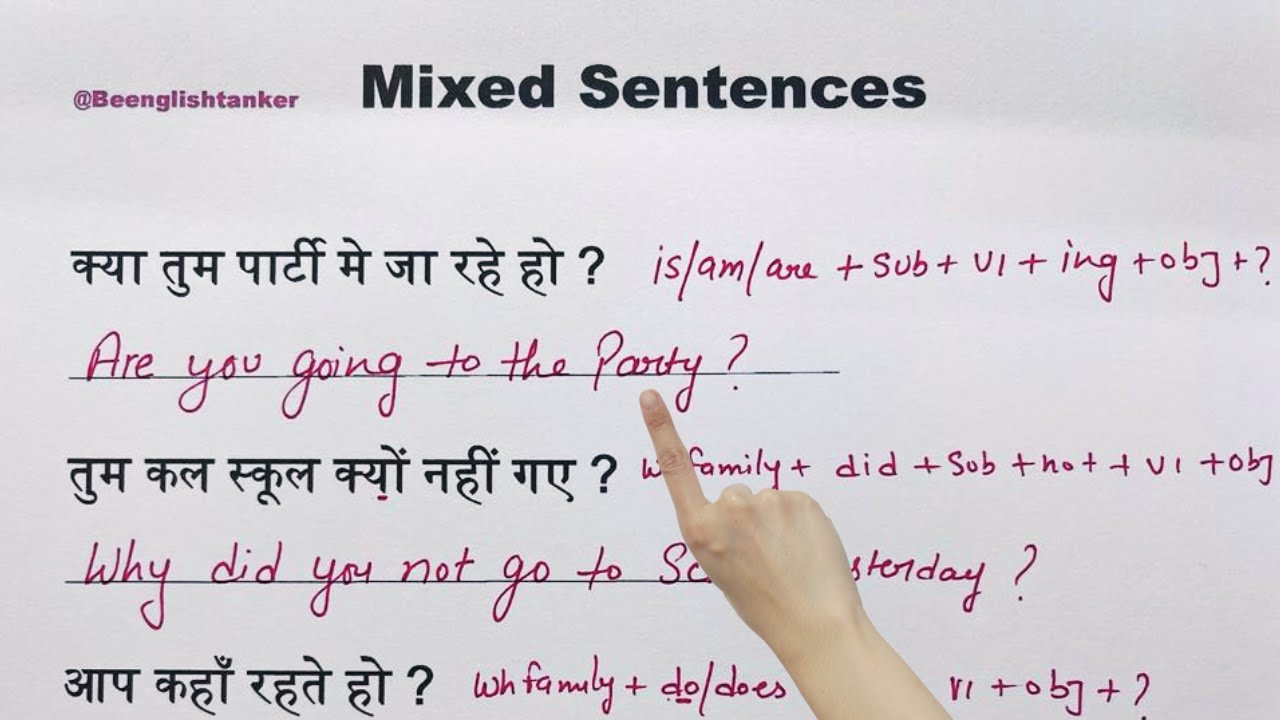 @Beenglishtanker
Mixed Sentences
क्या तुम पार्टी मे जा रहे हो ? is/am/are + sub + v1 + ing + obj + ?
Are you going to the Party ?
तुम कल स्कूल क्यों नहीं गए ? family + did + sub + not + v1 + obj
Why did you not go to ?
आप कहाँ रहते हो ? wh family + do/does v1 + obj + ?